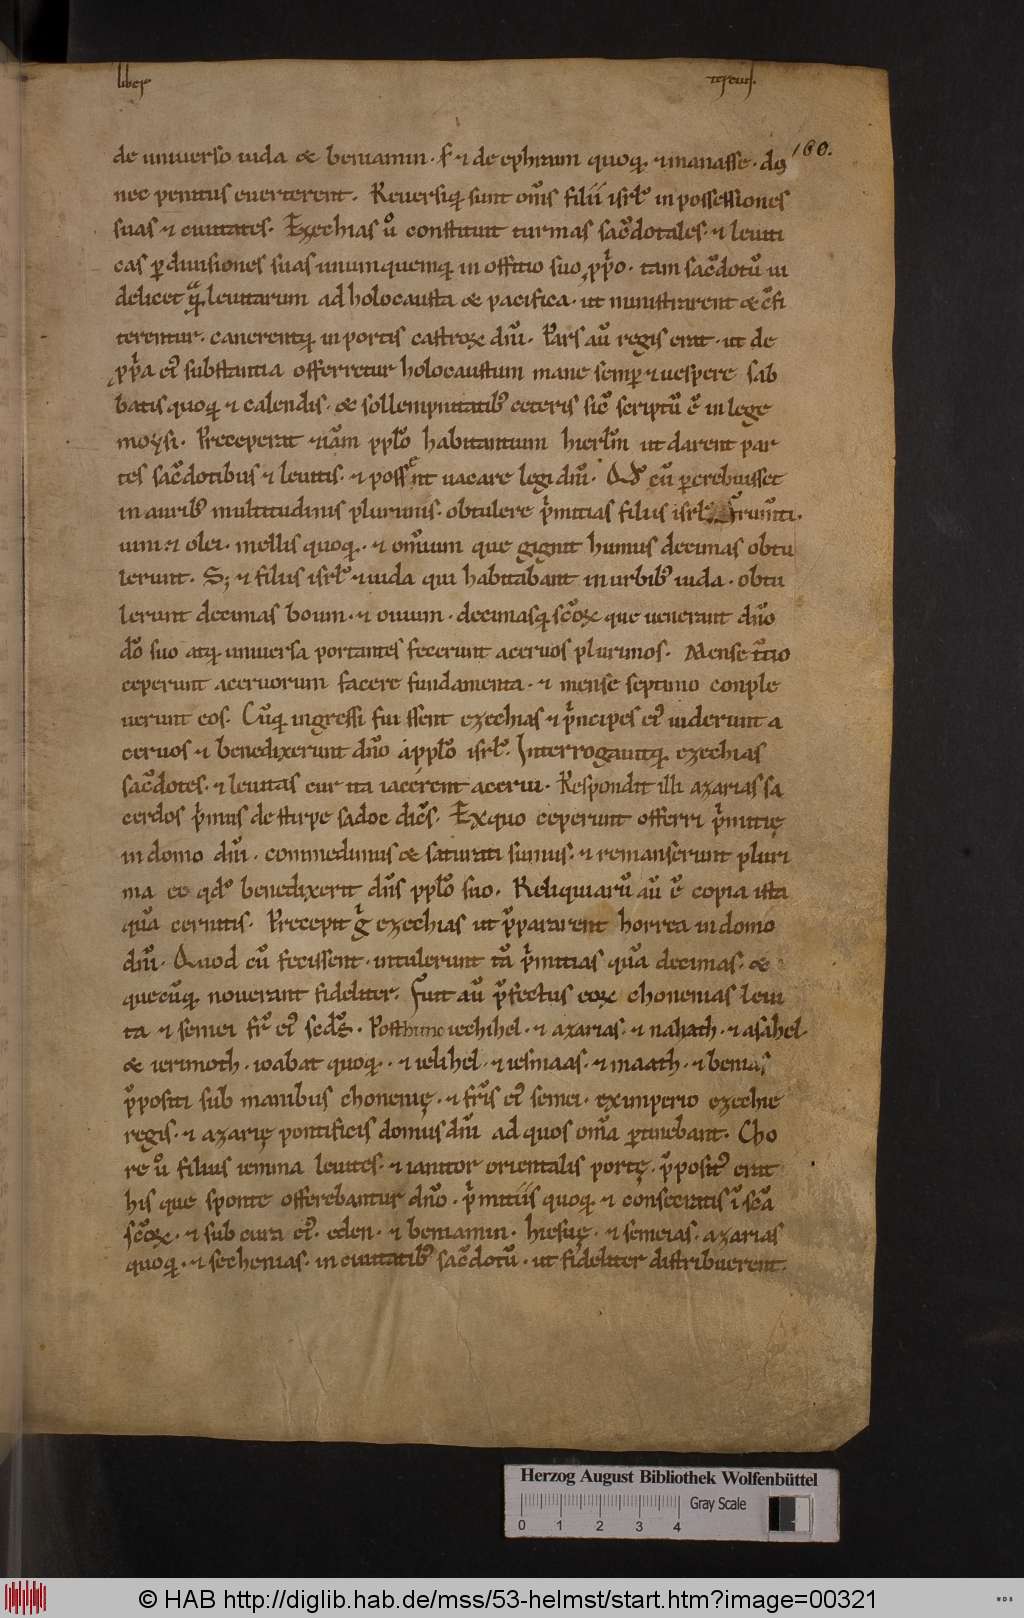 liber tercius.
160.
de universo iuda & beniamin. s; ⁊ de ephraim quoq; ⁊ manasse. do
nec penitus everterent. Reversiq; sunt om̅s filii isrl̅ in possessiones
suas ⁊ civitates. Ezechias u̅o constituit turmas sac̅dotales. ⁊ leviti
cas p̱ divisiones suas unumquemq; in offitio suo p̱p̅o. tam sac̅dotu̅ vi
delicet q̅ leuitarum ad holocausta & pacifica. ut ministrarent & c̅fi
terentur. canerentq; in portis castroꝝ dn̅i. Pars au̅ regis erat. ut de
p̱p̅a ei᷒ substantia offerretur holocaustum mane semp̱ ⁊ vespere sab
batis quoq; ⁊ calendis. & sollempnitatib᷒ ceteris sic̅ scriptu̅ e̅ in lege
moysi. Preceperat etia̅m pp̅lo habitantium hierl̅m ut darent par
tes sac̅dotibus ⁊ levitis. ⁊ possent vacare legi dn̅i. Qd̅ cu̅ p̱crebuisset
in aurib᷒ multitudinis plurimis. obtulere p̅mitias filiis isrl̅. frum̅ti.
vini. ⁊ olei. mellis quoq;. ⁊ om̅ium que gignit humus decimas obtu
lerunt. S; ⁊ filiis isrl̅ ⁊ iuda qui habitabant in urbib᷒ iuda. obtu
lerunt decimas boum. ⁊ ovium. decimasq; sc̅oꝝ que venerant dn̅o
do̅ suo atq; universa portantes fecerunt acervos plurimos. Mense t̅cio
ceperunt acervorum facere fundamenta. ⁊ mense septimo conple
verunt eos. Cu̅q; ingressi fuissent ezechias ⁊ p̅ncipes ei᷒ viderunt a
cervos ⁊ benedixerunt dn̅o a pp̅lo isrl̅. Interrogavitq; ezechias
sac̅dotes. ⁊ levitas cur ita iacerent acervi. Respondit illi azarias sa
cerdos p̅mus de stirpe sadoc dice̅s. Exquo ceperunt offerri p̅mitię
in domo dn̅i. commedimus & saturati sumus. ⁊ remanserunt pluri
ma eo qd̅ benedixerit dn̅s pp̅lo suo. Reliquiaru̅ au̅ e̅ copia ista
qua̅ cernitis. Precepit g̅ ezechias ut p̅pararent horrea in domo
dn̅i. Quod cu̅ fecissent. intulerunt ta̅ p̅mitias qua̅ decimas. &
quecu̅q; noverant fideliter. Fuit au̅ p̅fectus eoꝝ chonenias levi
ta ⁊ semei fr̅ ei᷒ scd̅s. Posthunc iechihel. ⁊ azarias. ⁊ nahath. ⁊ asahel.
& ierimoth. iozabat quoq;. ⁊ ielihel. ⁊ iesmaas. ⁊ maath. ⁊ benias
p̅positi sub manibus chonenię. ⁊ fr̅is ei᷒ semei. ex imperio ezechie
regis. ⁊ azarię pontificis domus dn̅i ad quos om̅a p̱tinebant. Cho
re u̅o filius iemina levites. ⁊ ianitor orientalis portę. p̅posit᷒ erat
his que sponte offerebantur dn̅o. p̅mitiis quoq; ⁊ consecratis i̅ sc̅a
sc̅oꝝ. ⁊ sub cura ei᷒. eden. ⁊ beniamin. hiesuę. ⁊ semeias. azarias
quoq;. ⁊ sechenias. in civitatib᷒ sac̅dotu̅. ut fideliter distribuerent.
Herzog August Bibliothek Wolfenbüttel
Gray Scale
0 1 2 3 4
© HAB http://diglib.hab.de/mss/53-helmst/start.htm?image=00321